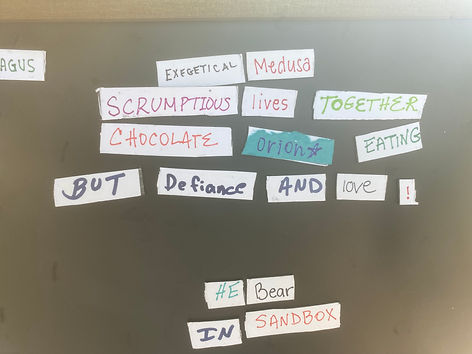 AGUS
EXEGETICAL Medusa
SCRUMPTIOUS lives TOGETHER
CHOCOLATE Orion EATING
BUT Defiance AND love !
HE Bear
IN SANDBOX